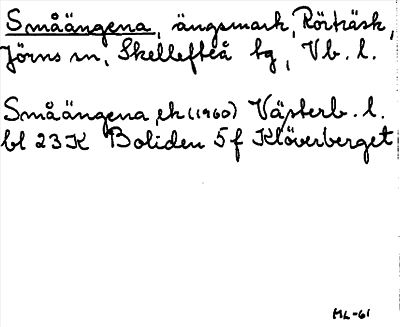 Småängena, ängsmark, Rörträsk,
Jörns sn, Skellefteå tg, Vb. l.
Småängena, ek (1960) Västerb. l.
bl 23K Boliden 5f Klöverberget
ML-61